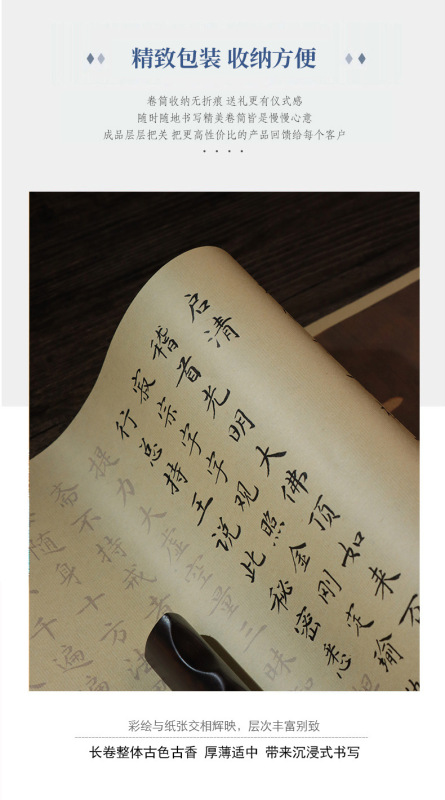 精致包装 收纳方便
卷筒收纳无折痕 送礼更有仪式感
随时随地书写精美卷筒皆是慢慢心意
成品层层把关 把更高性价比的产品回馈给每个客户
启清
稽首光明大佛顶如来
寂宗字字观照金刚定瑜
行总持王说此秘密悉
提力大虚空量三昧
斋不持戒者
随身十方法
千遍遍
彩绘与纸张交相辉映，层次丰富别致
长卷整体古色古香 厚薄适中 带来沉浸式书写